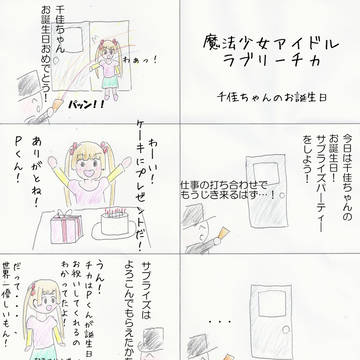 魔法少女アイドル
ラブリーチカ
千佳ちゃんのお誕生日
今日は千佳ちゃんの
お誕生日！
サプライズパーティー
をしよう！
仕事の打ち合わせで
もうじき来るはず…！
・・・
千佳ちゃん
お誕生日おめでとう！
わぁっ！
パン！！
わーい！
ケーキにプレゼントだ！
ありがとね！
Pくん！
サプライズは
よろこんでもらえたかな
うん！
チカはPくんが誕生日
お祝いしてくれるの
わかってたよ！
だって・・・
世界一優しいもん！